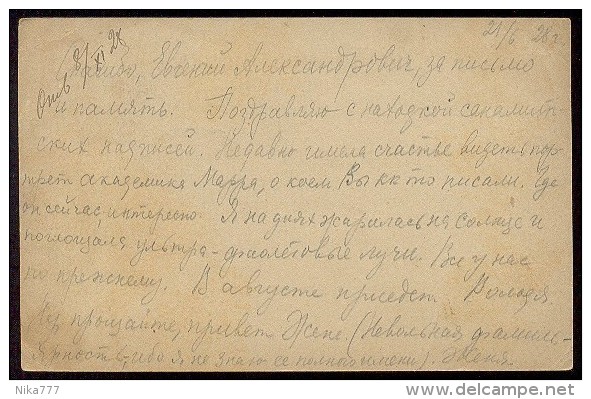 21/6 28 г.
Отв 8/XI 28
Спасибо, Евгений Александрович, за письмо
и память. Поздравляю с находкой
ских надписей. Недавно имела счастье видеть пор-
трет академика Марра, о коем Вы как то писали. Где
он сейчас интересно. Я на днях жарилась на солнце и
поглощала ультра-фиолетовые лучи. Все у нас
по прежнему. В августе приедет Володя.
Ну, прощайте, привет Жене. (Невольная фамиль-
ярность, ибо я не знаю ее полного имени). Женя.
Nika777
delcampe.net